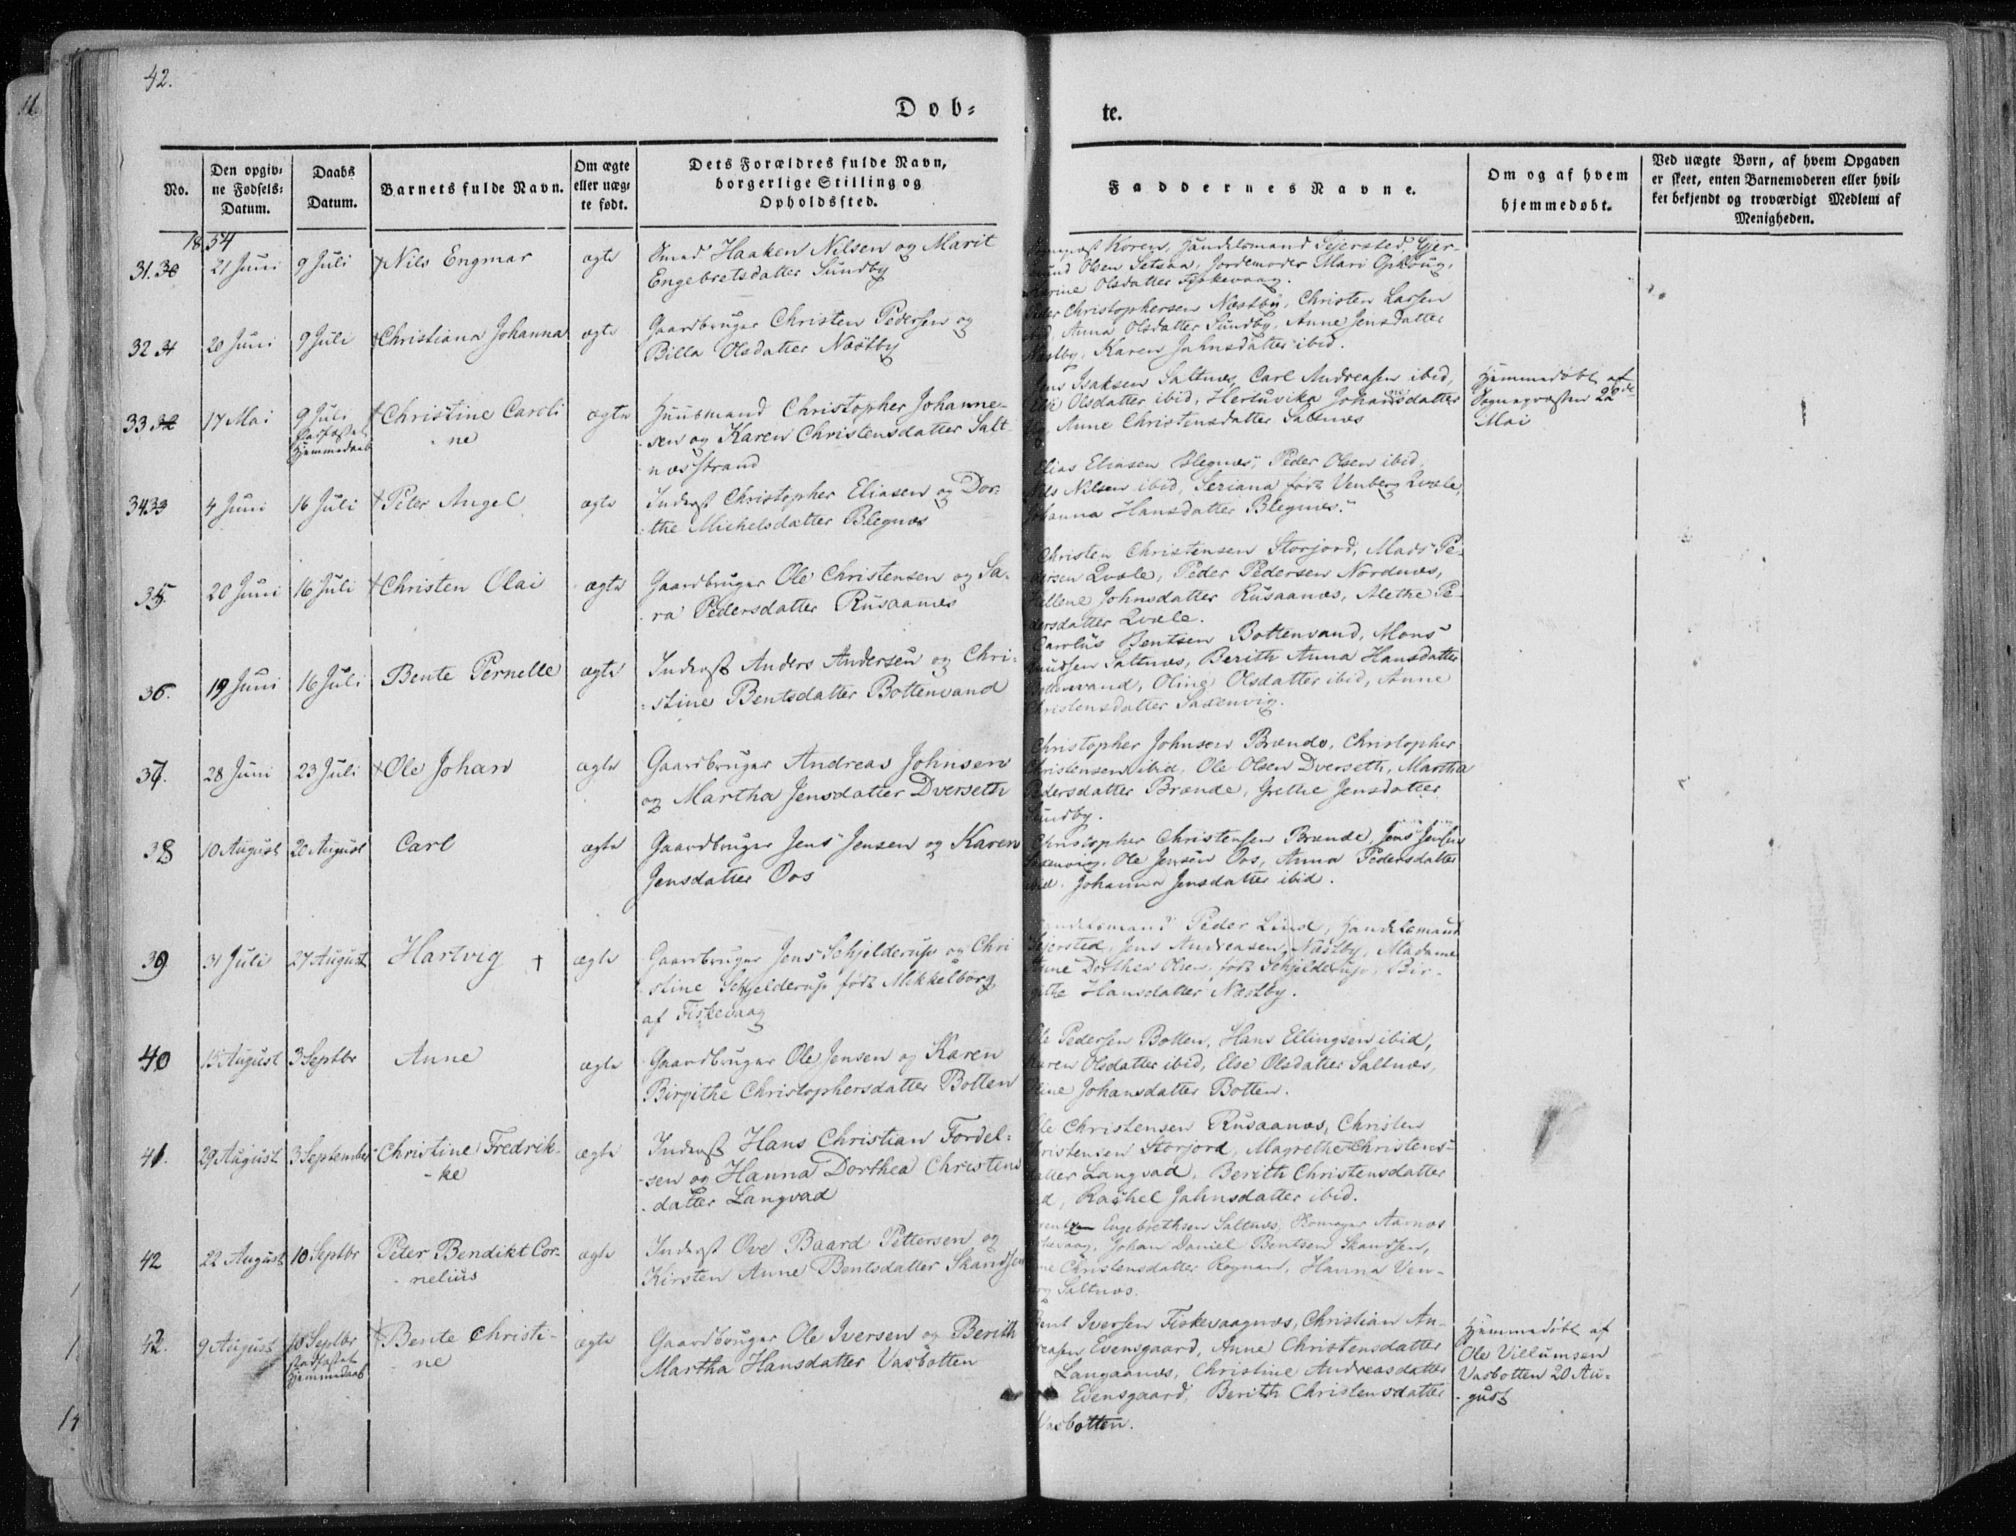 42.
Døb-
te.
No.
Den opgiv-
ne Fødsels-
Datum.
Daabs
Datum.
Barnets fulde Navn.
Om ægte
eller uæg-
te født.
Dets Forældres fulde Navn,
borgerlige Stilling og
Opholdssted.
Faddernes Navne.
Om og af hvem
hjemmedøbt.
Ved uægte Børn, af hvem Opgaven
er skeet, enten Barnemoderen eller hvil-
ket bekjendt og troværdigt Medlem af
Menigheden.
1854
31. 30 21 Juni 9 Juli Nils Engmar ægte Smed Haaken Nilsen og Marit
Engebretsdatter Sundby
Koren, Handelsmand Sejersted, Gjer-
mund Olsen Setsaa, Jordemoder Mari
Olsdatter Fiskevaag.
32 31 20 Juni 9 Juli Christiana Johanna ægte Gaardbruger Christen Pedersen og
Billa Olsdatter Næstby
Peder Christophersen Næstby, Christen Larsen
ibid, Anna Olsdatter Sundby, Anne Jensdatter
Næstby, Karen Jahnsdatter ibid.
33 32 17 Mai 9 Juli
stadfæstet
Hjemmedaab
Christine Caroli
ne
ægte Huusmand Christopher Johanne-
sen og Karen Christensdatter Salt-
næsstrand
Jens Isaksen Saltnæs, Carl Andreasen ibid,
Else Olsdatter ibid, Hertuvika Johannsdatter
og Anne Christensdatter Saltnæs
Hjemmedøbt af
Sognepræsten 22de
Mai
34 33 4 Juni 16 Juli Peter Angel ægte Inderst Christopher Eliasen og Dor-
the Michelsdatter Blegnæs
Elias Eliasen Blegnæs, Peder Olsen ibid,
Nils Nilsen ibid, Seriana født Venberg Qvæle,
Johanna Hansdatter Blegnæs.
35. 20 Juni 16 Juli Christen Olai ægte Gaardbruger Ole Christensen og Sa-
ra Pedersdatter Rusaanæs
Christen Christensen Storjord, Mads Pe-
dersen Qvæle, Peder Pedersen Nordnæs,
Hellene Johnsdatter Rusaanæs, Alethe Pe-
dersdatter Qvæle.
36. 19 Juni 16 Juli Bente Pernelle ægte Inderst Anders Andersen og Chri-
stine Bentsdatter Bottenvand
Carolus Bentsen Bottenvand, Mons
Knudsen Saltnæs, Berith Anna Hansdatter
Bottenvand, Oline Olsdatter ibid, Anne
Christensdatter Saxenvig.
37. 28 Juni 23 Juli Ole Johan ægte Gaardbruger Andreas Johnsen
og Martha Jensdatter Dverseth
Christopher Johnsen Brænde, Christopher
Christensen ibid, Ole Olsen Dverseth, Martha
Pedersdatter Brænde, Grethe Jensdatter
Sundby.
38 10 August 20 August Carl ægte Gaardbruger Jens Jensen og Karen
Jensdatter Oos
Christopher Christensen Brænde, Jens Jensen
Saxenvig, Ole Jensen Oos, Anna Pedersdatter
ibid, Johanna Jensdatter ibid.
39 31 Juli 27 August Hartvig ægte Gaardbruger Jens Schjelderup og Chri
stine Schjelderup født Mikkelborg
af Fiskevaag
Handelsmand Peder Lind, Handelsmand
Sejersted, Jens Andreasen Næstby, Madame
Anne Dorthea Olsen født Schjelderup, Bir-
githe Hansdatter Næstby.
40 15 August 3 Septbr Anne ægte Gaardbruger Ole Jensen og Karen
Birgithe Christophersdatter Botten
Ole Pedersen Botten, Hans Ellingsen ibid,
Karen Olsdatter ibid, Else Olsdatter Saltnæs,
Oline Johansdatter Botten.
41. 29 August 3 September Christine Fredrik-
ke
ægte Inderst Hans Christian Fordel-
sen og Hanna Dorthea Christens
datter Langvad
Ole Christensen Rusaanæs, Christen
Christensen Storjord, Magrethe Christens-
datter Langvad, Berith Christensdatter
ibid, Rachel Jahnsdatter ibid.
42 22 August 10 Septbr Peter Bendikt Cor-
nelius
ægte Inderst Ove Baard Pettersen og
Kirsten Anne Bentsdatter Skandsen
Engebrethsen Saltnæs,
Johan Daniel Bentsen Skandsen,
Christensdatter Rognan, Hanna Ven-
Saltnæs.
42. 9 August 10 Septbr
stadfæstet
Hjemmedaab
Bente Christi-
ne
ægte Gaardbruger Ole Iversen og Berith
Martha Hansdatter Vasbotten
Bent Iversen Fiskevaagnæs, Christian An-
dreasen Evensgaard, Anne Christensdatter
Langaanæs, Christine Andreasdatter
Evensgaard, Berith Christensdatter
Vasbotten.
Hjemmedøbt af
Ole Villumsen
Vasbotten 20 Au-
gust